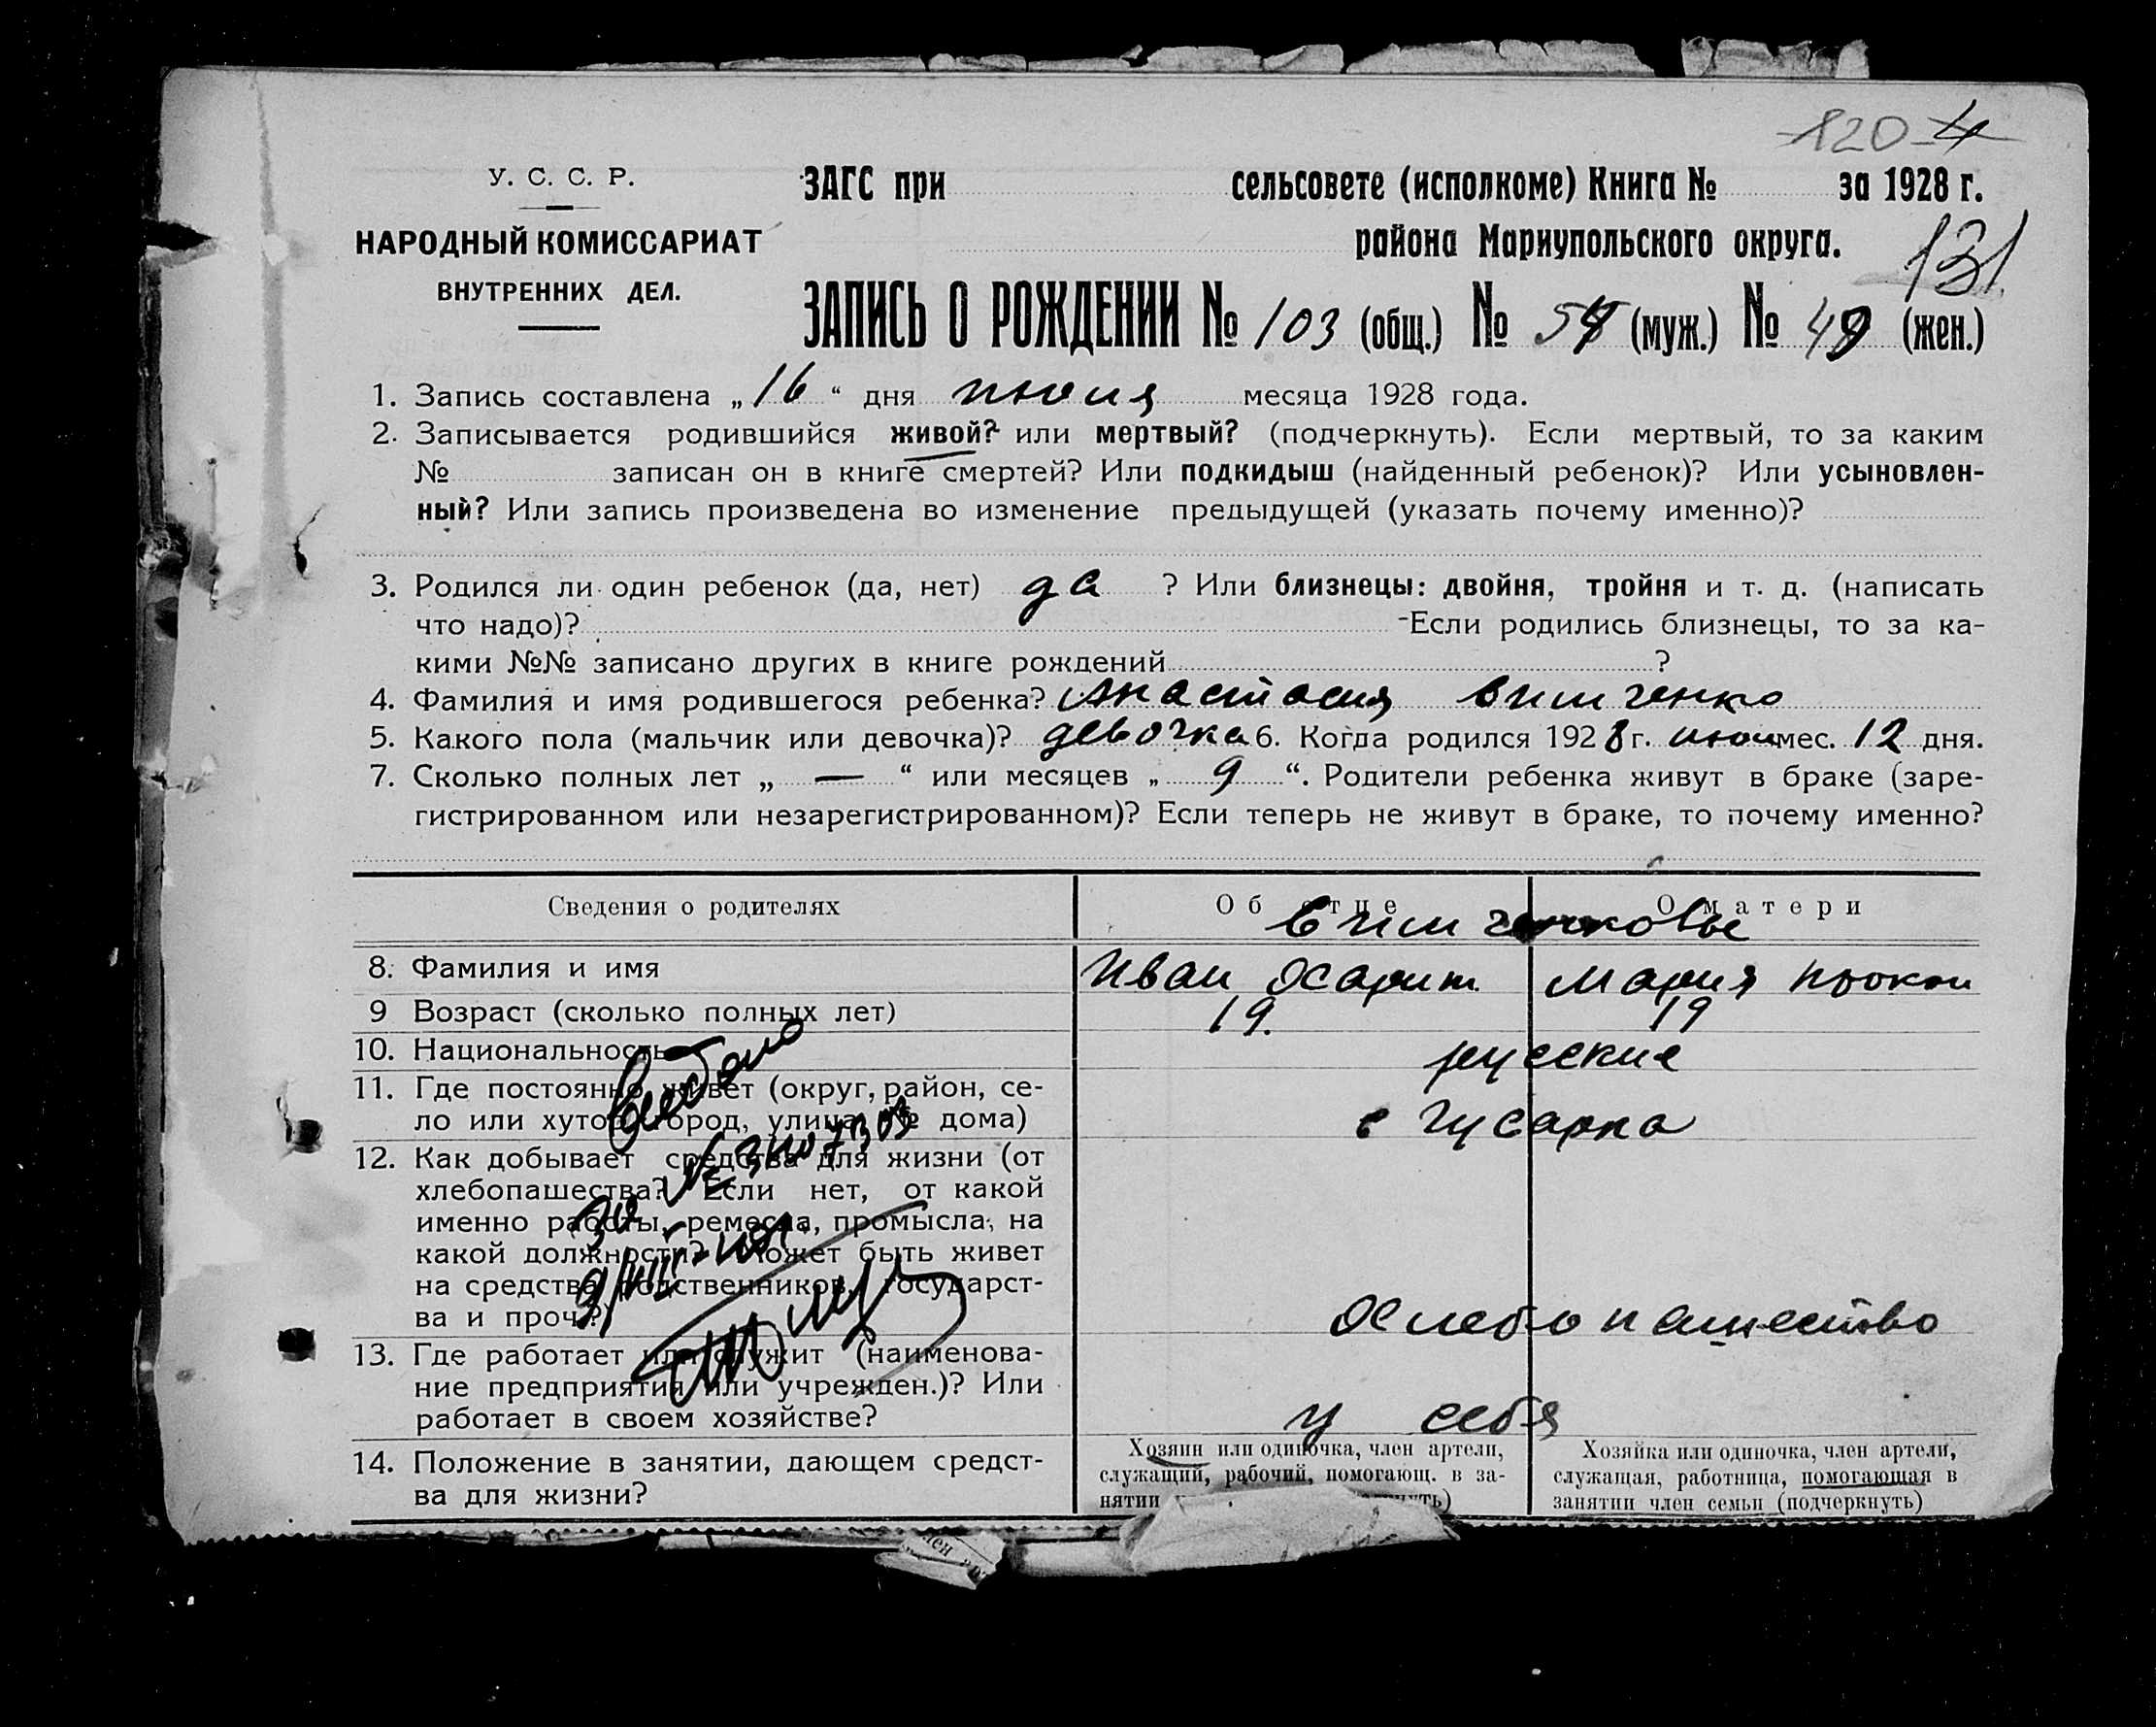 120 4
У. С. С. Р.
НАРОДНЫЙ КОМИССАРИАТ
ВНУТРЕННИХ ДЕЛ.
ЗАГС при сельсовете (исполкоме) Книга № за 1928 г.
района Мариупольского округа.
131
ЗАПИСЬ О РОЖДЕНИИ № 103 (общ.) № 54 (муж.) № 49 (жен.)
1. Запись составлена „16“ дня июня месяца 1928 года.
2. Записывается родившийся живой? или мертвый? (подчеркнуть). Если мертвый, то за каким
№ записан он в книге смертей? Или подкидыш (найденный ребенок)? Или усыновлен-
ный? Или запись произведена во изменение предыдущей (указать почему именно)?
3. Родился ли один ребенок (да, нет) да ? Или близнецы: двойня, тройня и т. д. (написать
что надо)? Если родились близнецы, то за ка-
кими №№ записано других в книге рождений ?
4. Фамилия и имя родившегося ребенка? Анастасия Вишченко
5. Какого пола (мальчик или девочка)? девочка 6. Когда родился 1928 г. июн мес. 12 дня.
7. Сколько полных лет „ — “ или месяцев „ 9 “. Родители ребенка живут в браке (заре-
гистрированном или незарегистрированном)? Если теперь не живут в браке, то почему именно?
Сведения о родителях
Об отце
О матери
Вишченковы
8. Фамилия и имя
Иван Харит.
Мария Прокоп
9 Возраст (сколько полных лет)
19.
19
10. Национальность
русские
11. Где постоянно живет (округ, район, се-
ло или хутор, город, улица, № дома)
с Гусарка
12. Как добывает средства для жизни (от
хлебопашества? Если нет, от какой
именно работы, ремесла, промысла, на
какой должности? Может быть живет
на средства родственников, государст-
ва и проч.?)
хлебопашество
13. Где работает или служит (наименова-
ние предприятия или учрежден.)? Или
работает в своем хозяйстве?
у себя
14. Положение в занятии, дающем средст-
ва для жизни?
Хозяин или одиночка, член артели,
служащий, рабочий, помогающ. в за-
нятии
Хозяйка или одиночка, член артели,
служащая, работница, помогающая в
занятии член семьи (подчеркнуть)